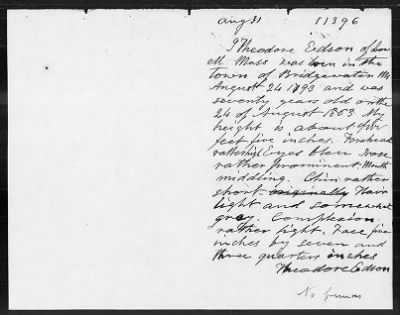 Aug 31 11396
I Theodore Edson of Low
ell Mass was born in the
town of Bridgewater Ms
August 24 1793 and was
seventy years old on the
24 of August 1863 My
height is about
feet five inches. Forehead
rather high Eyes blue Nose
rather prominent. Mouth
middling. Chin rather
short. originally Hair
light and somewhat
grey. Complexion
rather light. Face five
inches by seven and
three quarters inches
Theodore Edson